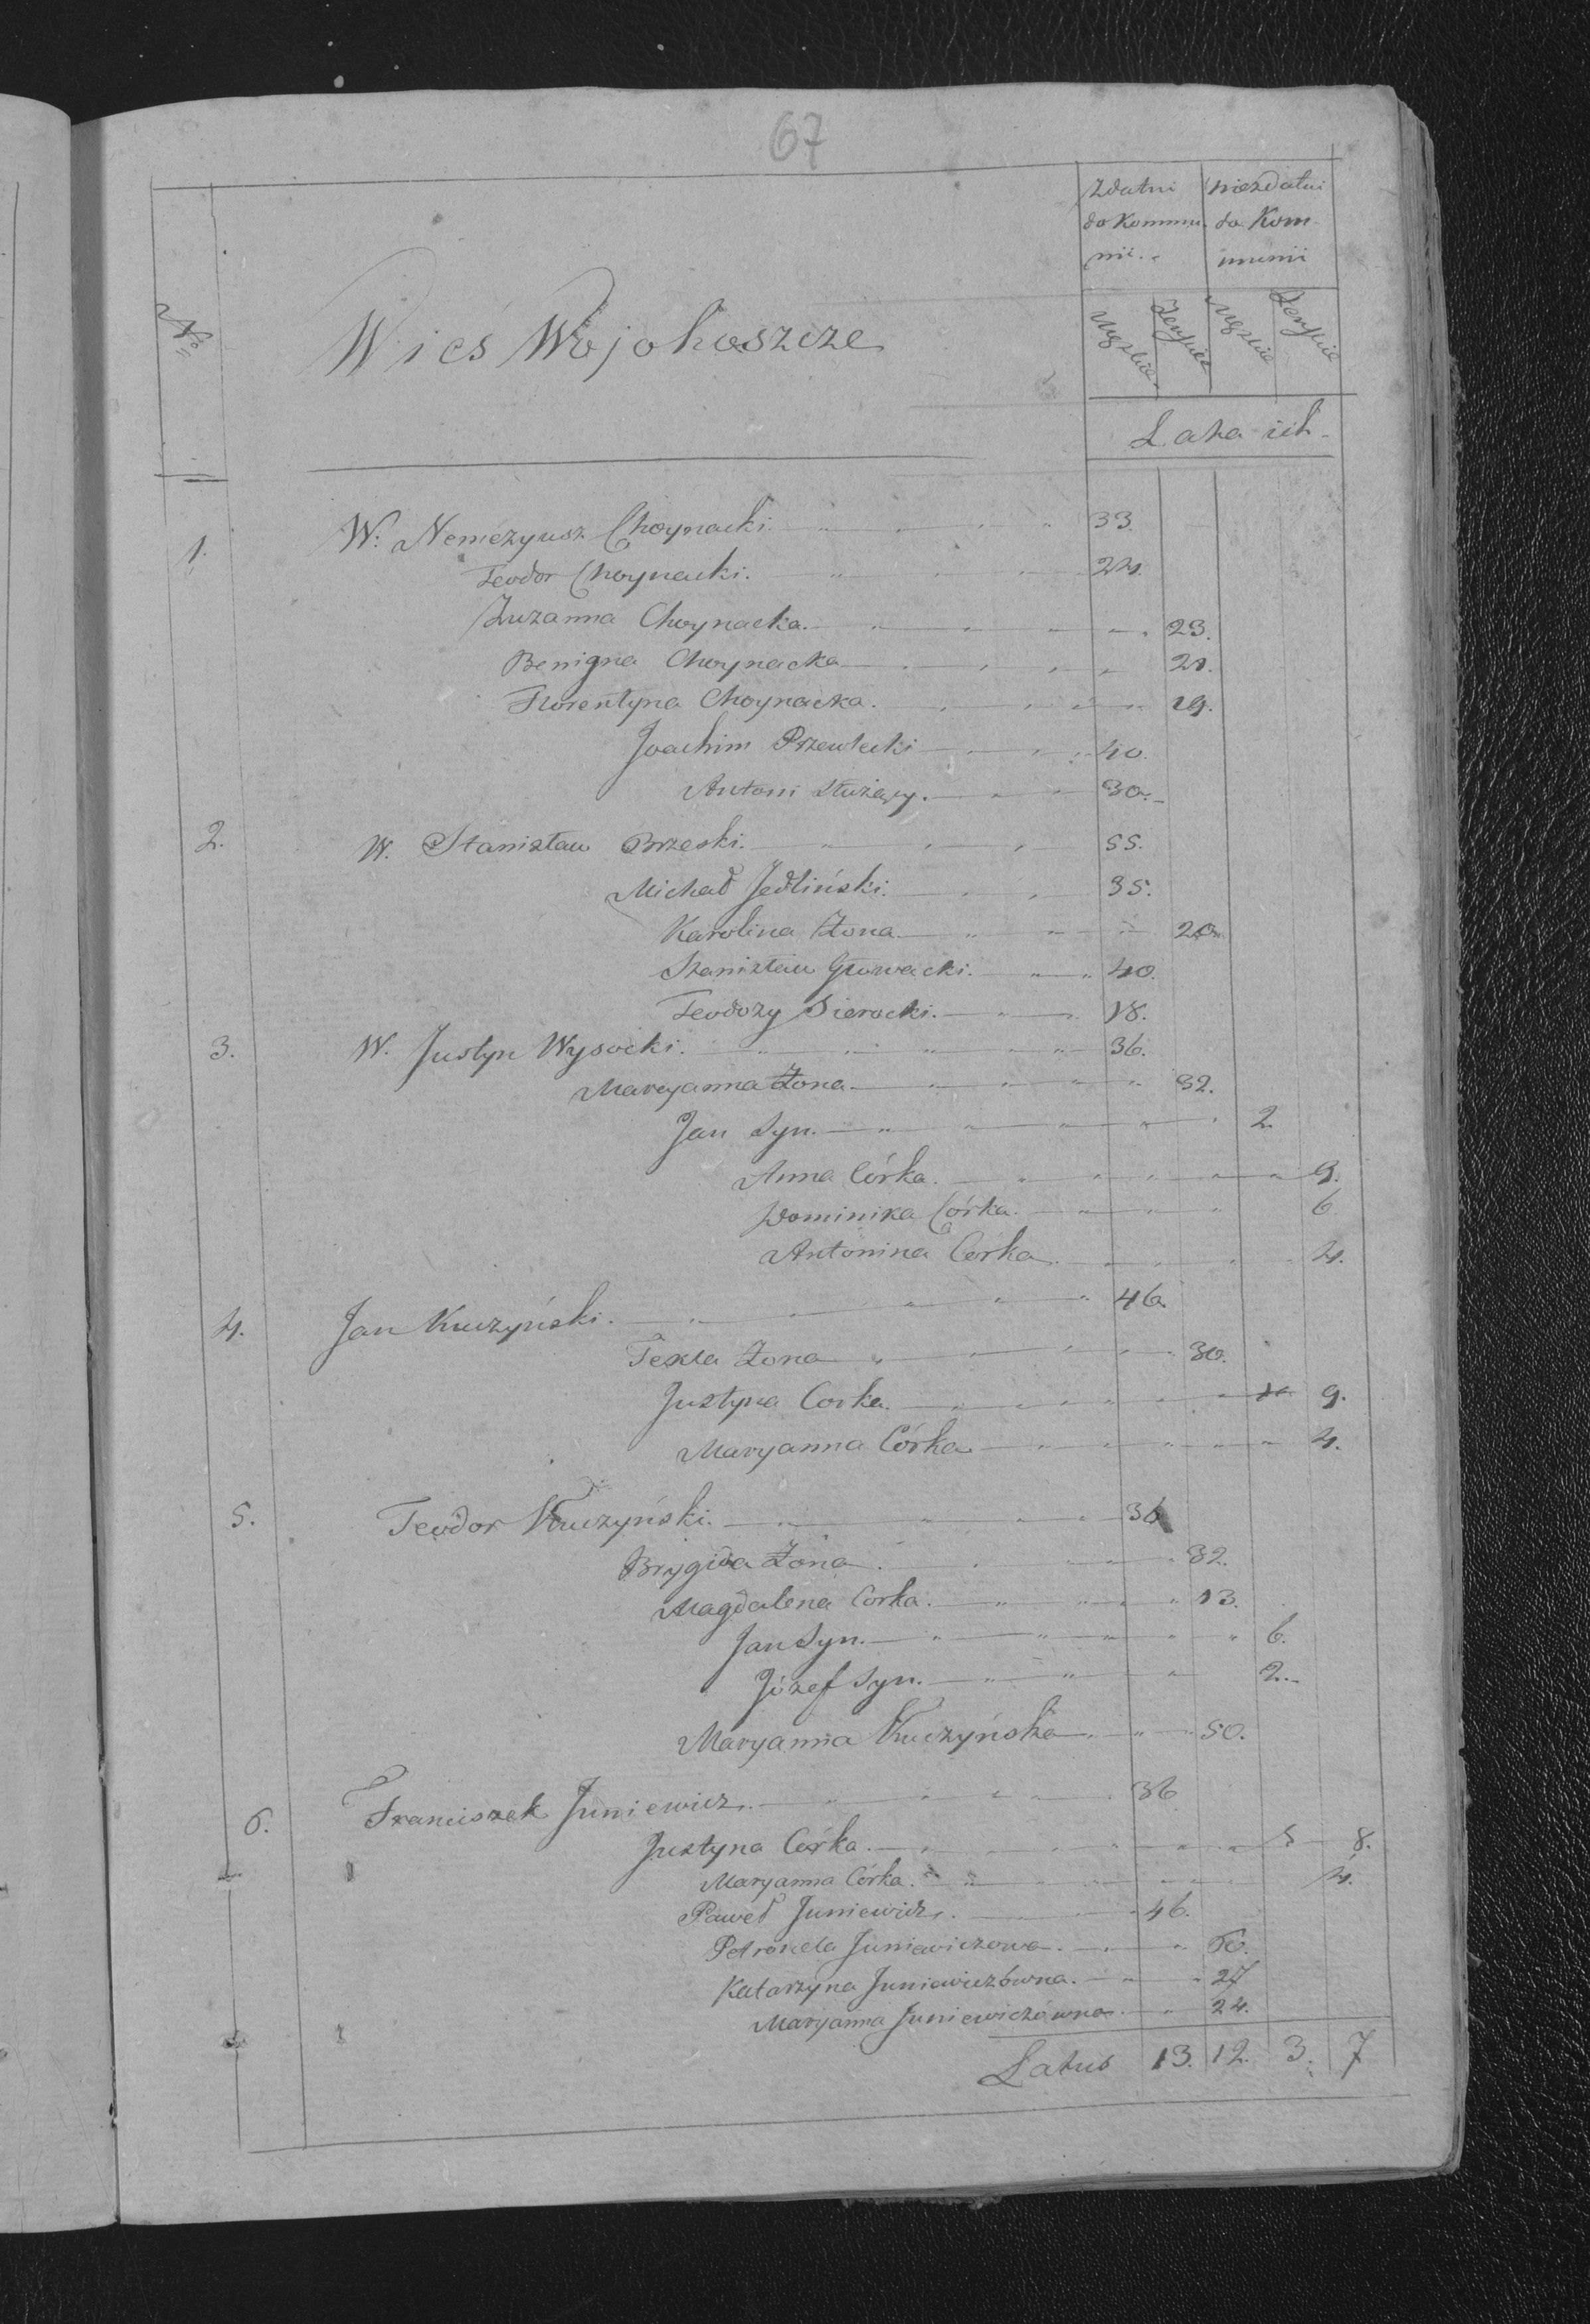 67
Zdatni niezdatni
do Kommu do Kom-
nii munii
No
Wieś Wojohoszcze
Męzkie Zeńskie Męzkie Zeńskie
Lata ich
1. W. Nemezyusz Choynacki 33.
Teodor Choynacki. 24.
Zuzanna Choynacka. 23.
Benigna Choynacka 21.
Florentyna Choynacka. 19.
Joachim Przewłocki 40.
Antoni służący. 30.
2. W. Stanisław Brzeski. 55.
Michał Jedliński. 35.
Karolina Żona 20
Stanisław Głowacki. 40.
Teodozy Sierocki. 18.
3. W. Justyn Wysocki. 36.
Maryanna Żona 32.
Jan Syn. 2.
Anna Córka. 9.
Dominika Córka. 6
Antonina Corka 4.
4. Jan Kuczyński. 46.
Texla Żona 30.
Justyna Corka. 9.
Maryanna Córka 4.
5. Teodor Kuczyński. 36
Brygida Żona. 32.
Magdalena Corka. 13.
Jan Syn. 6.
Józef Syn. 2.
Maryanna Kuczyńska 50.
6. Franciszek Juniewicz. 36
Justyna Córka. 8.
Maryanna Córka. 4.
Paweł Juniewicz. 46.
Petronela Juniewiczowa. 60.
Katarzyna Juniewiczówna. 27
Maryanna Juniewiczówna 24.
Latus 13. 12. 3. 7